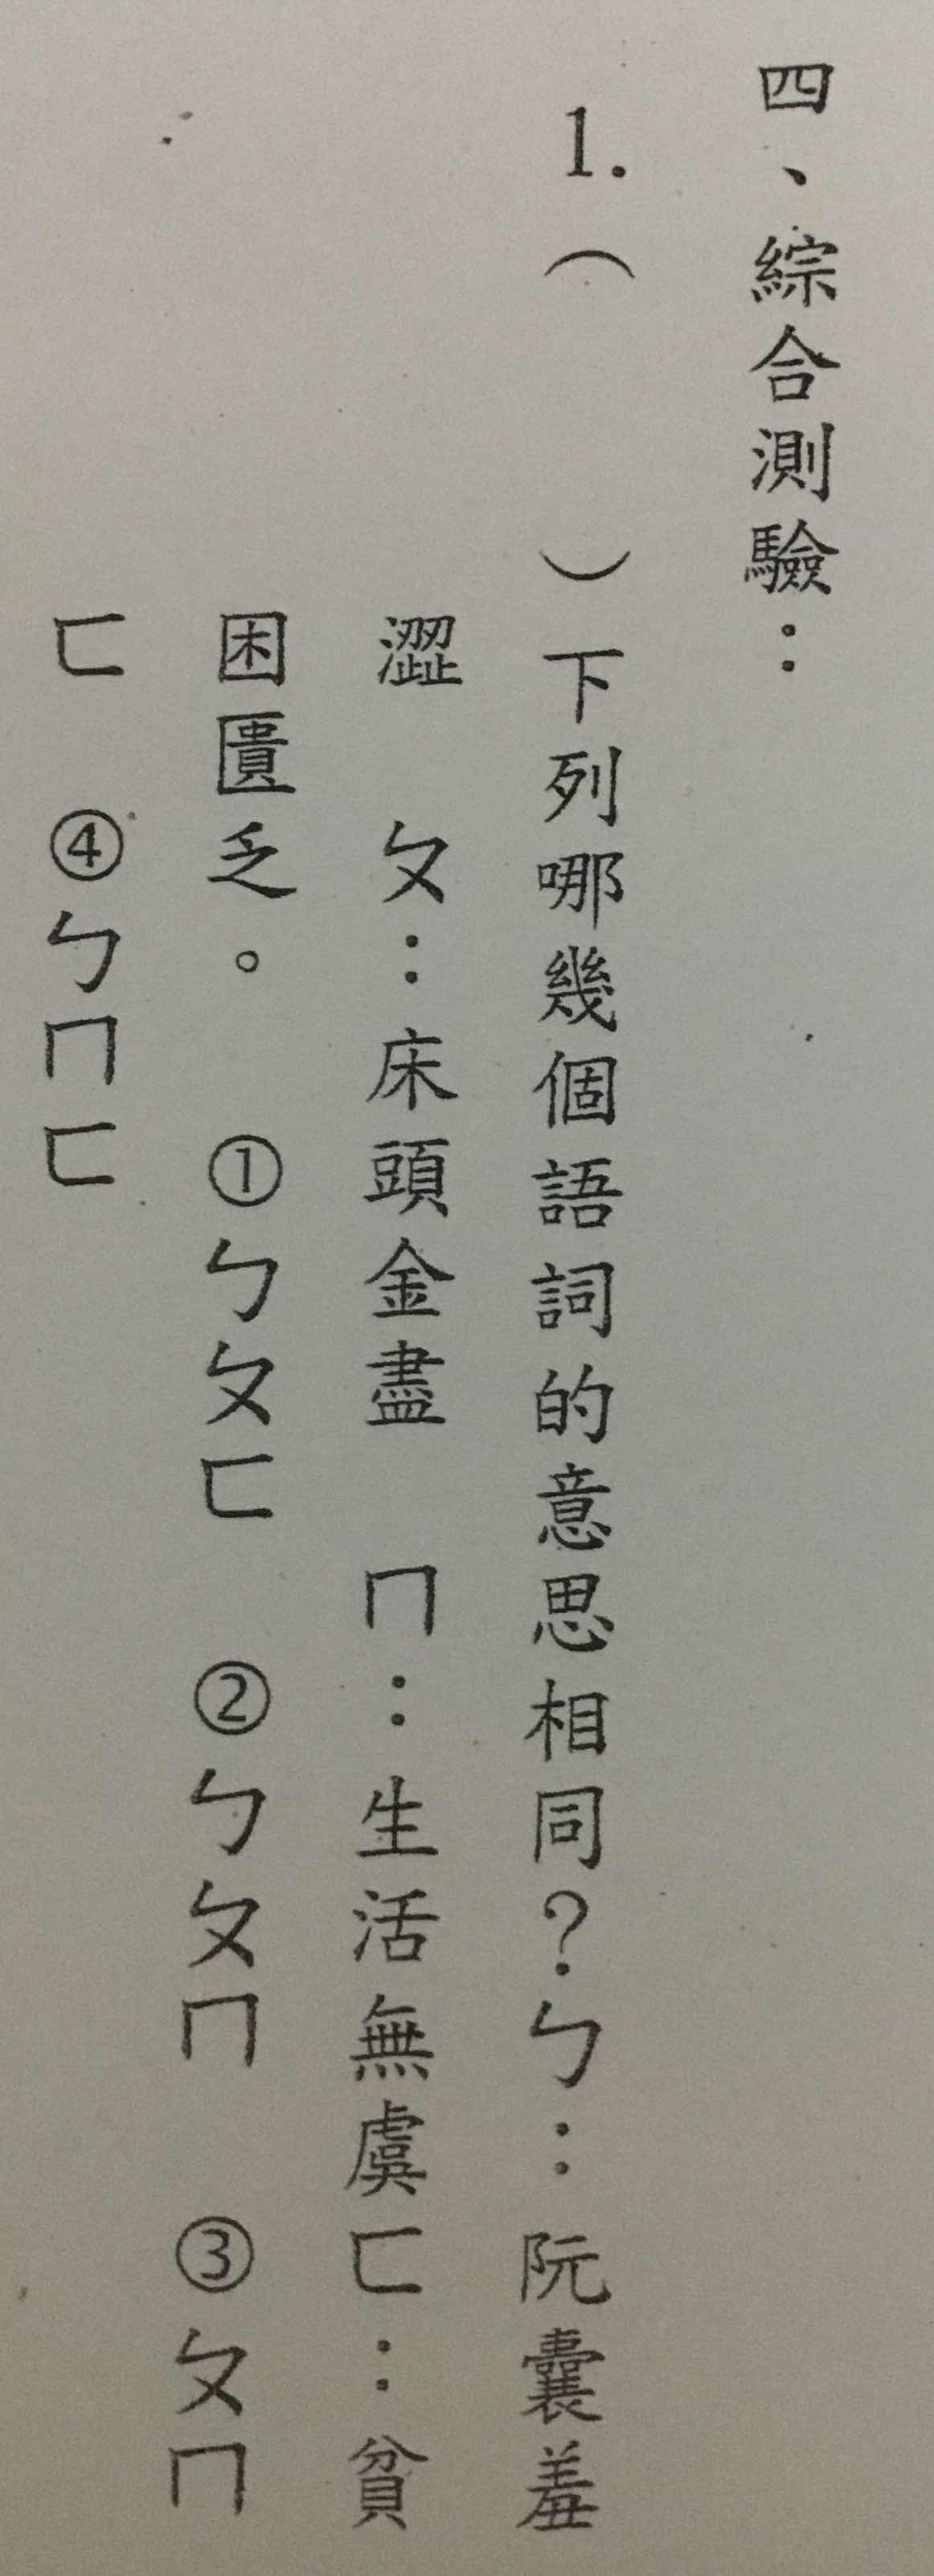 四、綜合測驗：
1.（　　）下列哪幾個語詞的意思相同？ㄅ：阮囊羞
澀　ㄆ：床頭金盡　ㄇ：生活無虞ㄈ：貧
困匱乏。　①ㄅㄆㄈ　②ㄅㄆㄇ　③ㄆㄇ
ㄈ　④ㄅㄇㄈ